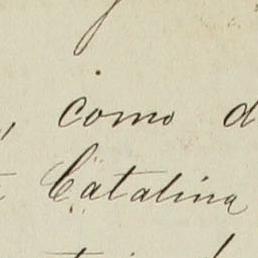 , como d
Catalina